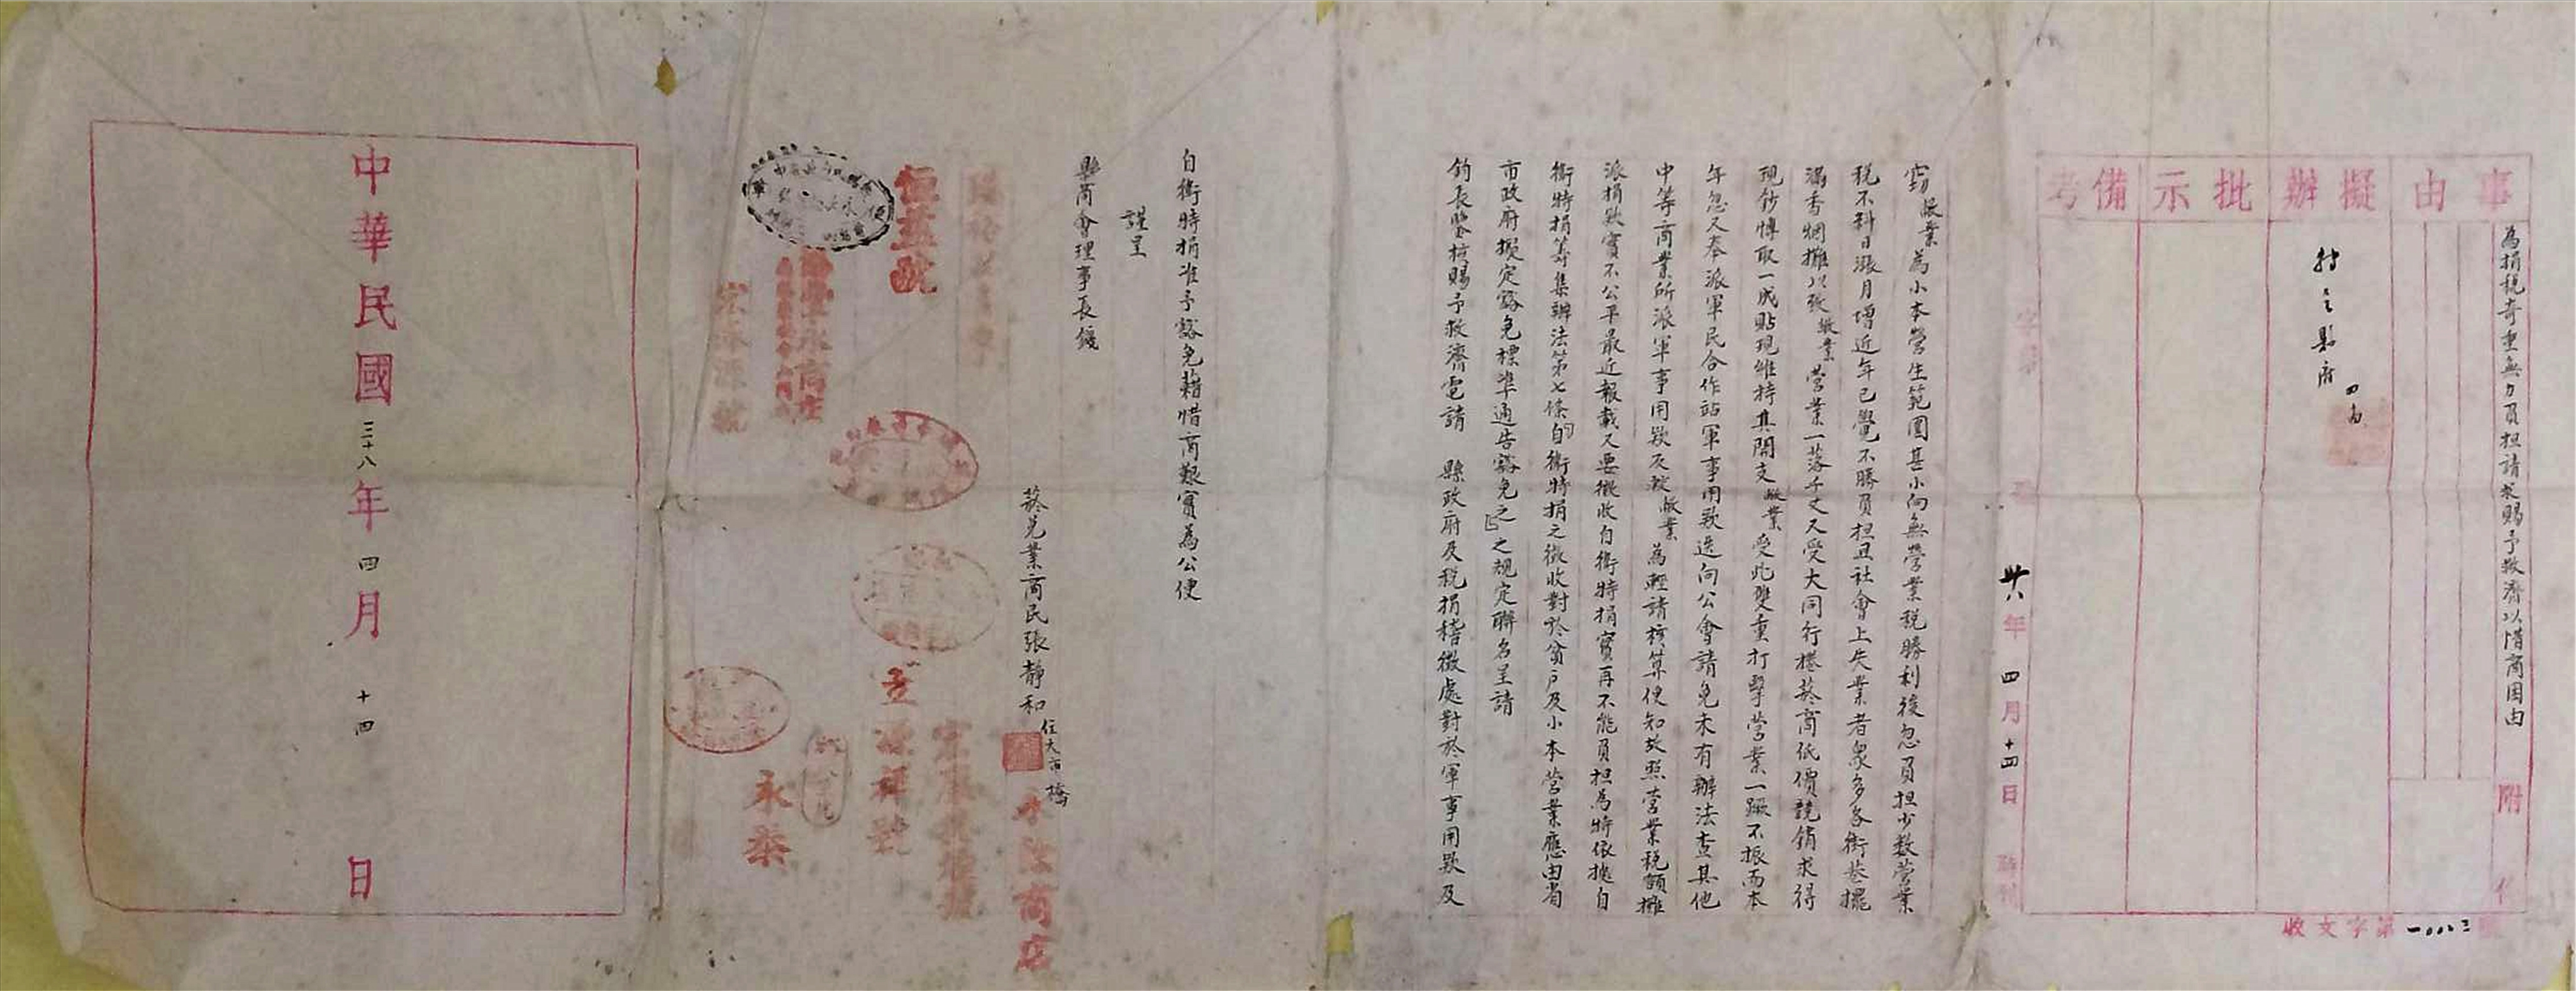 事由
擬辦
批示
備考
為捐稅奇重無力負担請求賜予救濟以惜商困由
附
件
轉呈縣府
收文字第一〇〇八三號
卅八年四月十四日
竊敝業為小本營生範圍甚小向無營業稅勝利後忽負担少数營業
稅不料日漲月增近年已覺不勝負担且社會上失業者衆多各街巷擺
滿香烟攤以致敝業营業一落千丈又受大同行捲菸商低價競銷求得
現鈔博取一成貼現維持其開支敝業受此雙重打擊营業一蹶不振而本
年忽又奉派軍民合作站軍事用款迭向公會請免未有辦法查其他
中等商業所派軍事用款反較敝業為輕請核算便知故照营業稅額攤
派捐款實不公平最近報載又要徵收自衛特捐實再不能負担為特依據自
衛特捐筹集辦法第七條「自衛特捐之徵收對於貧户及小本营業應由省
市政府擬定豁免標準通告豁免之」之規定聯名呈請
鈞長鑒核賜予救濟電請　縣政府及稅捐稽徵處對於軍事用款及
自衛特捐准予豁免藉惜商艱實為公便
謹呈
縣商會理事長錢
菸兑業商民張靜和
住大市橋
水陸商店
恒茂號
宏泰源號
源祥號
永泰
中華民國三十八年四月十四日